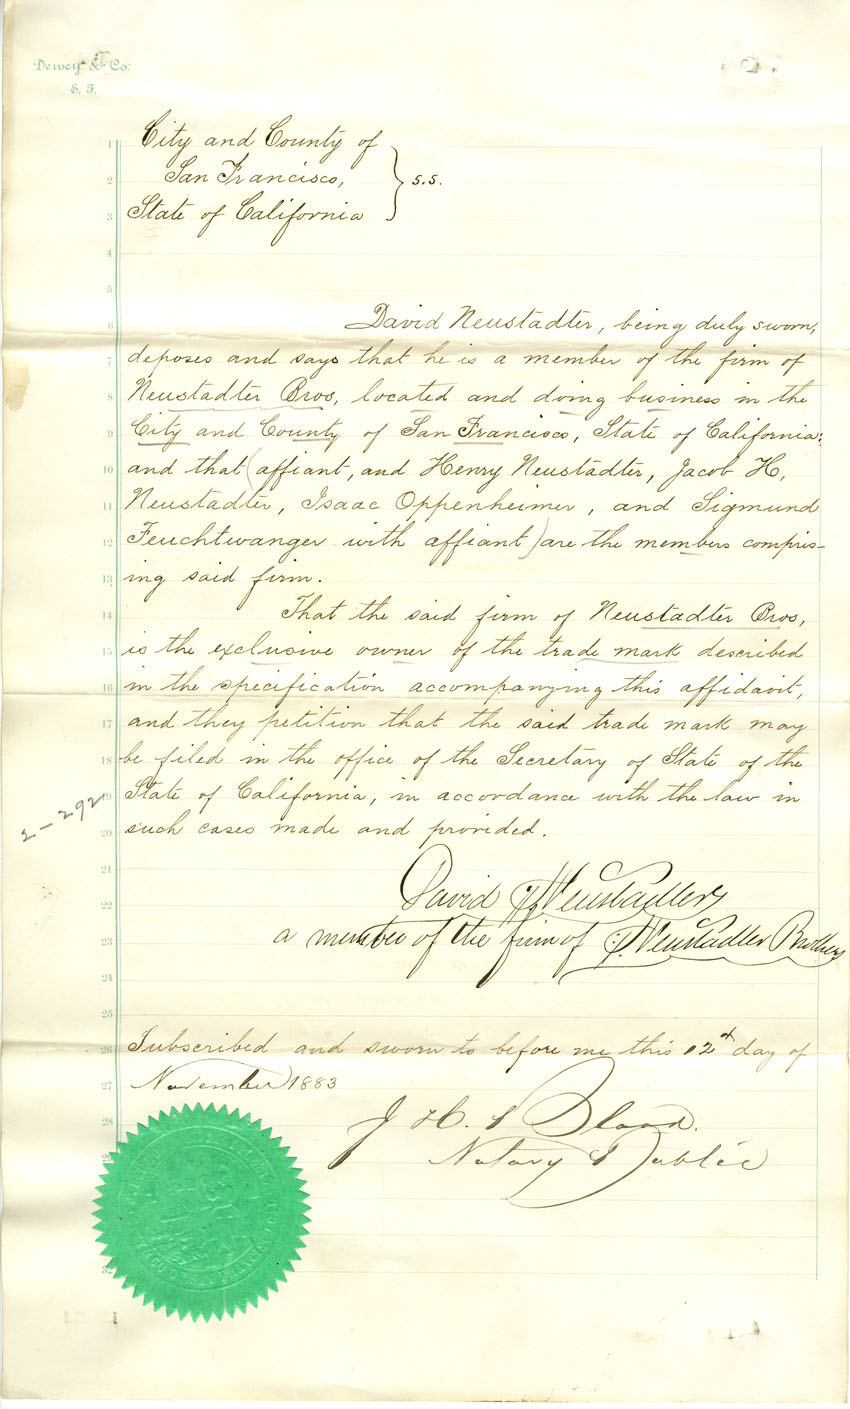 Dewey & Co.
S. F.
City and County of
San Francisco,
State of California
} s.s.
David Neustadter, being duly sworn,
deposes and says that he is a member of the firm of
Neustadter Bros, located and doing business in the
City and County of San Francisco, State of California:
and that (affiant, and Henry Neustadter, Jacob H,
Neustadter, Isaac Oppenheimer, and Sigmund
Feuchtwanger with affiant) are the members compris-
ing said firm.
That the said firm of Neustadter Bros,
is the exclusive owner of the trade mark described
in the specification accompanying this affidavit,
and they petition that the said trade mark may
be filed in the office of the Secretary of State of the
State of California, in accordance with the law in
2-292
such cases made and provided.
David Neustadter
a member of the firm of Neustadter Brothers
Subscribed and sworn to before me this 12th day of
November 1883
J. H. Blood.
Notary Public